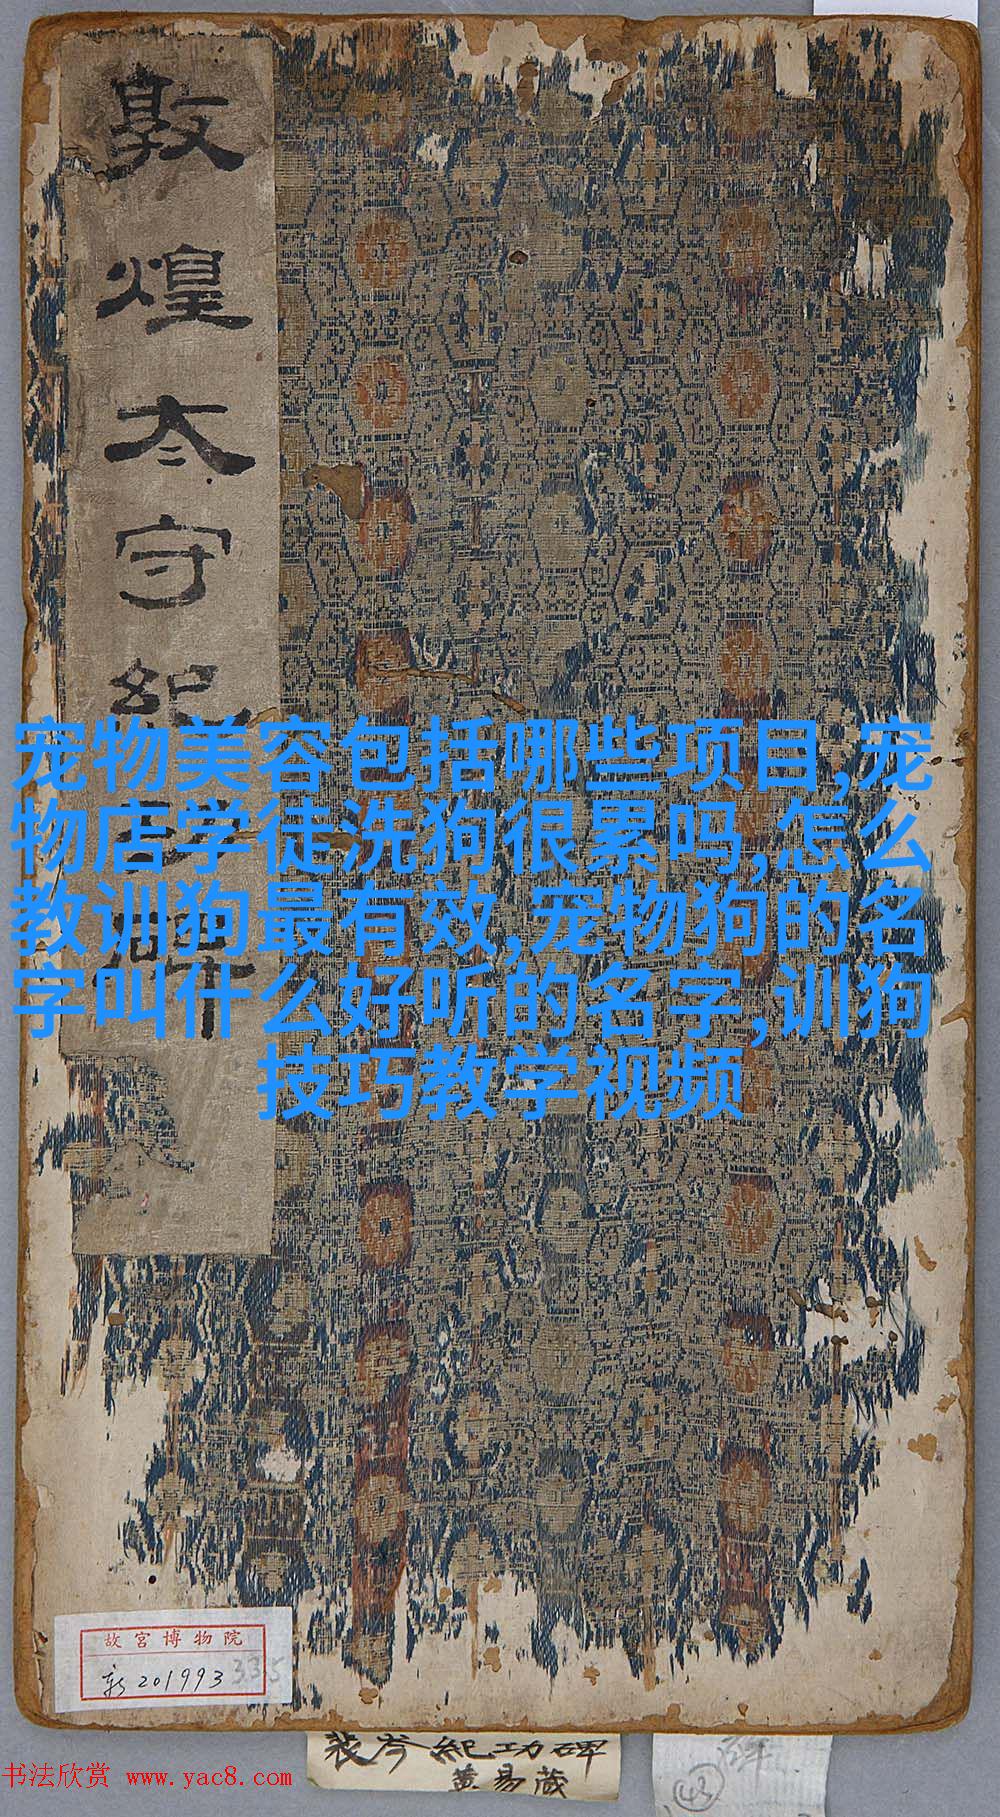 敦煌太守紀功碑
宠物美容包括哪些项目,宠
物店学徒洗狗很累吗,怎么
教训狗最有效,宠物狗的名
字叫什么好听的名字,训狗
技巧教学视频
故宫博物院
新201993
335
裴岑紀功碑
黄易藏
书法欣赏 www.yac8.com